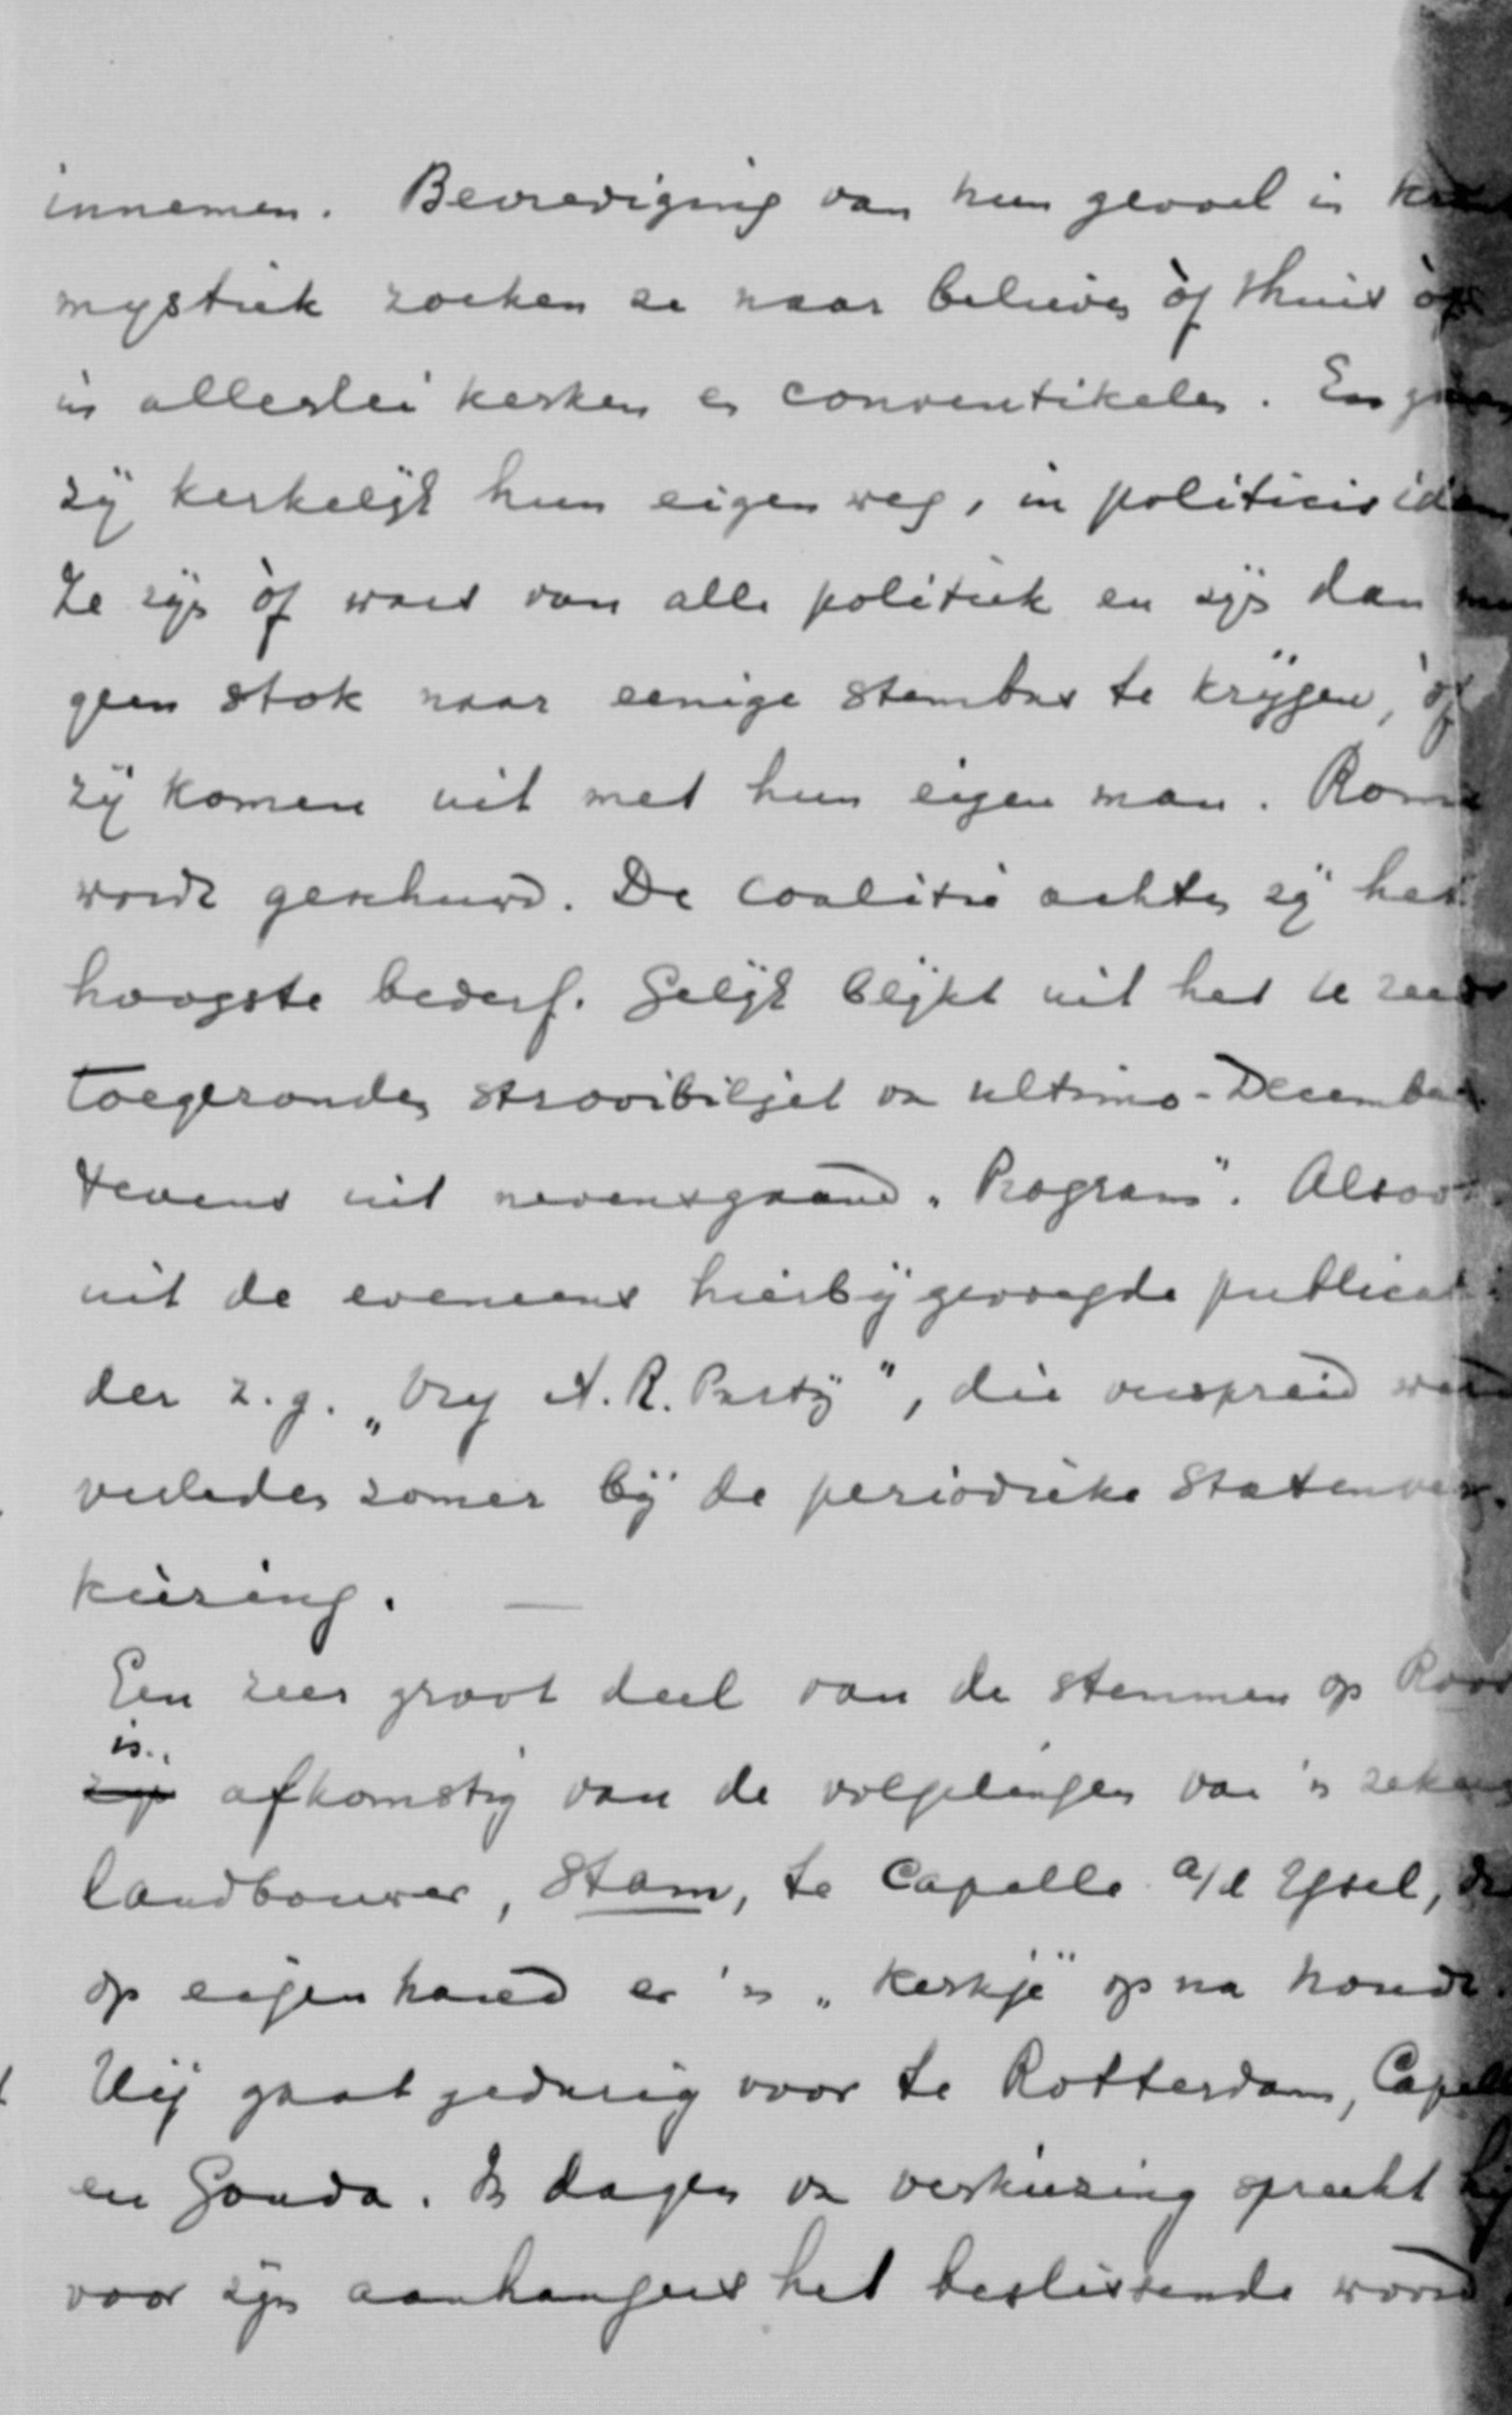 innemen. Bevrediging van hun gevoel in
mystiek zoeken ze naar believen òf thuis òf
in allerlei kerken en conventikelen. En gaan
zÿ kerkelÿk hun eigen weg, in politicis idem
Ze zÿn òf wars van alle politiek en zÿn dan
geen stok naar eenige stembus te krÿgen, òf
zÿ komen uit met hun eigen man. Rome
wordt geschuwd. De coalitie achten zÿ het
hoogste bederf. Gelÿk blÿkt uit het U reeds
toegezonden strooibiljet van ultimo-December
tevens uit nevensgaand „Program". Alsook
uit de eveneens hierbÿgevoegde publicatie
der z.g. „Vrÿ A.R. Partÿ", die verspreid werd
verleden zomer bÿ de periodieke Statenver-
kiezing. —
Een zeer groot deel van de stemmen op
is
afkomstig van de volgelingen van 'n zekeren
landbouwer, Stam, te Capelle a/d Yssel, die
op eigen hand er 'n „kerkje" op na houdt.
Hÿ gaat gedurig voor te Rotterdam, Capelle
en Gouda. In dagen van verkiezing spreekt hÿ
voor zÿn aanhangers het beslissende woord